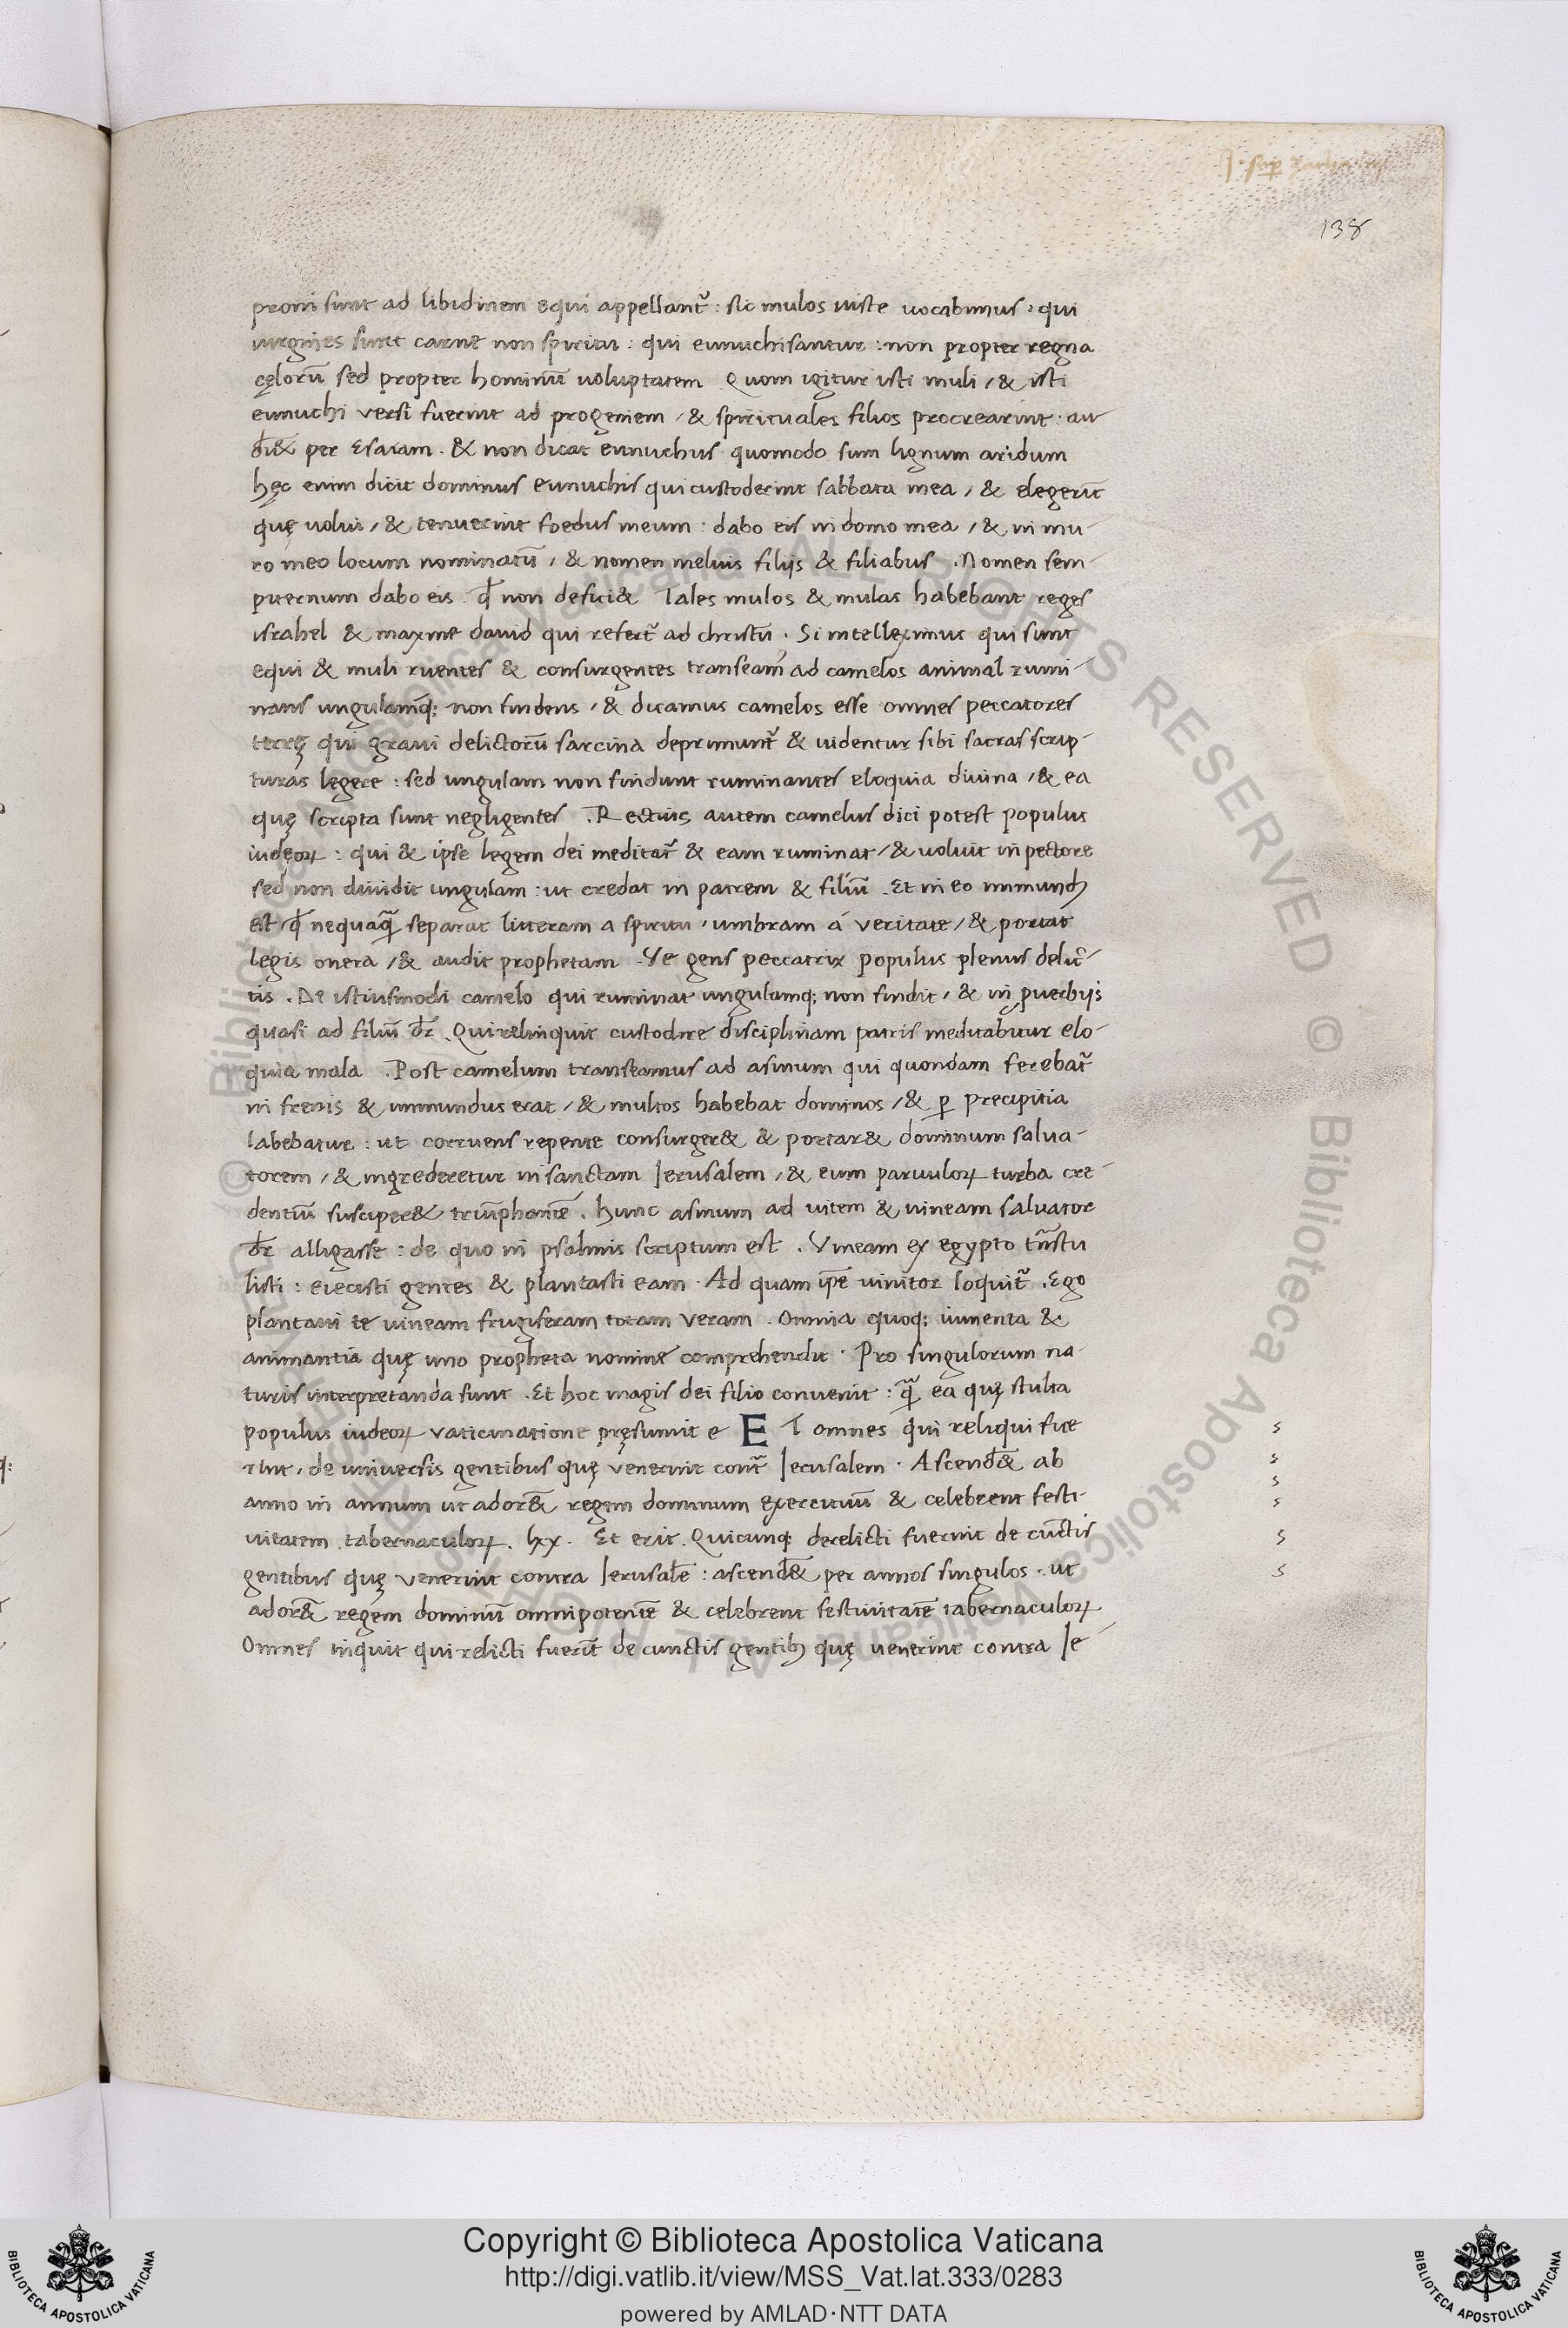 138
proni sunt ad libidinem equi appellant᷑ : sic mulos iuste vocabimus : qui
uirgines sunt carne non spiritu : qui eunuchisantur : non propter regna
cęlorū sed propter hominū uoluptatem Quom igitur isti muli / & isti
eunuchi versi fuerint ad progeniem / & spirituales filios procrearint . au
di& per Esaiam . & non dicat eunuchus quomodo sum lignum aridum
hęc enim dicit dominus eunuchis qui custoderint sabbata mea / & elegerīt
quę uolui / & tenuerint foedus meum : dabo eis in domo mea / & in mu-
ro meo locum nominatū / & nomen melius filijs & filiabus . Nomen sem-
piternum dabo eis qđ non defici& Tales mulos & mulas habebant reges
israhel & maxime david qui refert᷑ ad christū . Si intelleximus qui sunt
equi & muli ruentes & consurgentes transeam᾽ ad camelos animal rumi-
nans ungulamq; non findens / & dicamus camelos esse omnes peccatores
terrę qui graui delictorū sarcina deprimunt᷑ & uidentur sibi sacras scrip-
turas legere : sed ungulam non findunt ruminantes eloquia diuina / & ea
quę scripta sunt negligentes . Rectius autem camelus dici potest populus
iudęoꝝ : qui & ipse legem dei meditat᷑ & eam ruminat / & uoluit in pectore
sed non diuidit ungulam : ut credat in patrem & filiū . Et in eo immundꝰ
est / qđ nequaquā separat litteram a spiritu / umbram á veritate / & portat
legis onera / & audit prophetam . Ve gens peccatrix populus plenus delic-
tis . De istiusmodi camelo qui ruminat ungulamq; non findit / & in ꝓuerbijs
quasi ad filiū dr̄ . Qui relinquit custodire disciplinam patris meditabitur elo-
quia mala . Post camelum transeamus ad asinum qui quondam ferebat᷑
in frenis & immundus erat / & multos habebat dominos / & ꝑ precipitia
labebatur : ut corruens repente consurger& & portar& dominum salua-
torem / & ingrederetur in sanctam Jerusalem / & eum paruuloꝝ turba cre-
dentiū susciper& triūphantē . hunc asinum ad uitem & uineam saluator
dr̄ alligasse : de quo in psalmis scriptum est . Vineam ex egypto trāstu
listi : eiecisti gentes & plantasti eam . Ad quam ip̄e vinitor loquit᷑ . Ego
plantaui te uineam frugiferam totam veram . Omnia quoq; iumenta &
animantia quę uno propheta nomine comprehendit . Pro singulorum na-
turis interpretanda sunt . Et hoc magis dei filio convenit : quā ea quę stulta
populus iudeoꝝ vaticinatione pręsumit e E T omnes qui reliqui fue
rint / de uniuersis gentibus quę venerint cont᷑ Jerusalem . Ascend& ab
anno in annum ut ador& regem dominum exercituū & celebrent festi-
uitatem tabernaculoꝝ . lxx . Et erit . Quicunq; derelicti fuerint de cūctis
gentibus quę venerint contra Jerusalē : ascend& per annos singulos . ut
ador& regem dominū omnipotentē & celebrent festiuitatē tabernaculoꝝ
Omnes inquit qui relicti fuerīt de cunctis gentibꝰ quę uenerint contra Je-
Copyright © Biblioteca Apostolica Vaticana
http://digi.vatlib.it/view/MSS_Vat.lat.333/0283
powered by AMLAD·NTT DATA
BIBLIOTECA APOSTOLICA VATICANA
BIBLIOTECA APOSTOLICA VATICANA